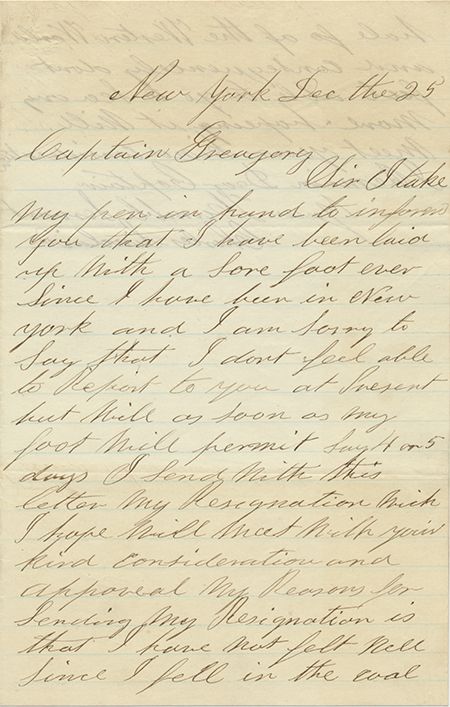 New York Dec the 25
Captain Greagory
Sir I take
my pen in hand to inform
you that I have been laid
up with a sore foot ever
since I have been in New
york and I am sorry to
say that I dont feel able
to Report to you at Present
but will as soon as my
foot will permit say 4 or 5
days I send with this
letter my Resignation wich
I hope will meet with your
kind consideration and
appoveal My Reasons for
sending my Resignation is
that I have not felt well
since I fell in the coal